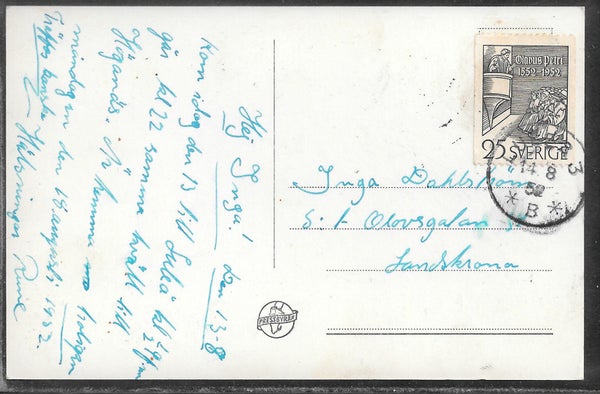 Hej Inga! Den 13-8
Kom idag den 13 till Luleå kl
går kl 22 samma kväll till
Höganäs. Är hemma tidigen
måndagen den 18 augusti 1952.
Träffas kanske
Hälsningar Rune
Olavus Petri
1552-1952
25 SVERIGE
14 8
52
* B *
3
Inga Dahlström
S:t Olovsgatan
Landskrona
PRESSBYRÅN